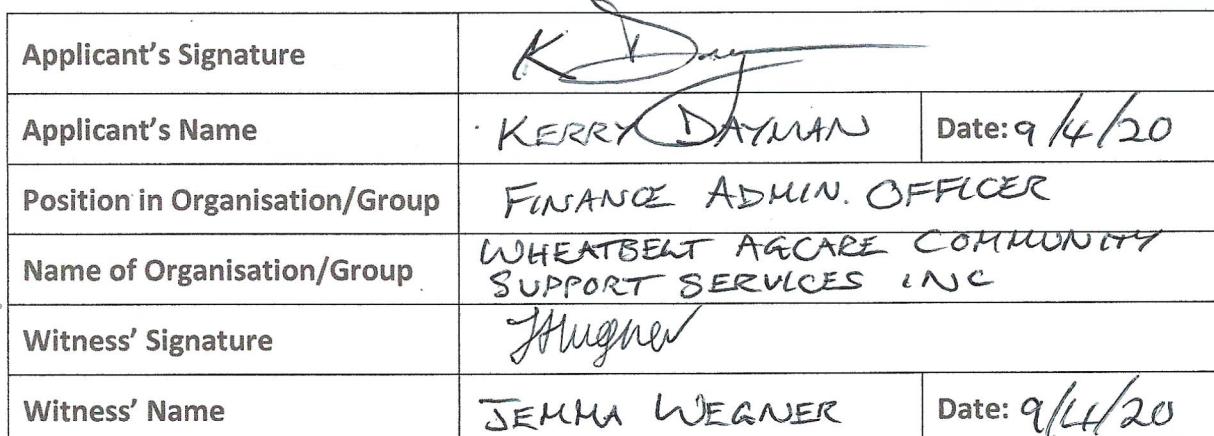 Applicant's Signature K Day
Applicant's Name KERRY DAYMAN Date: 9/4/20
Position in Organisation/Group FINANCE ADMIN. OFFICER
Name of Organisation/Group WHEATBELT AGCARE COMMUNITY
SUPPORT SERVICES INC
Witness' Signature
Witness' Name JEMMA WEGNER Date: 9/4/20